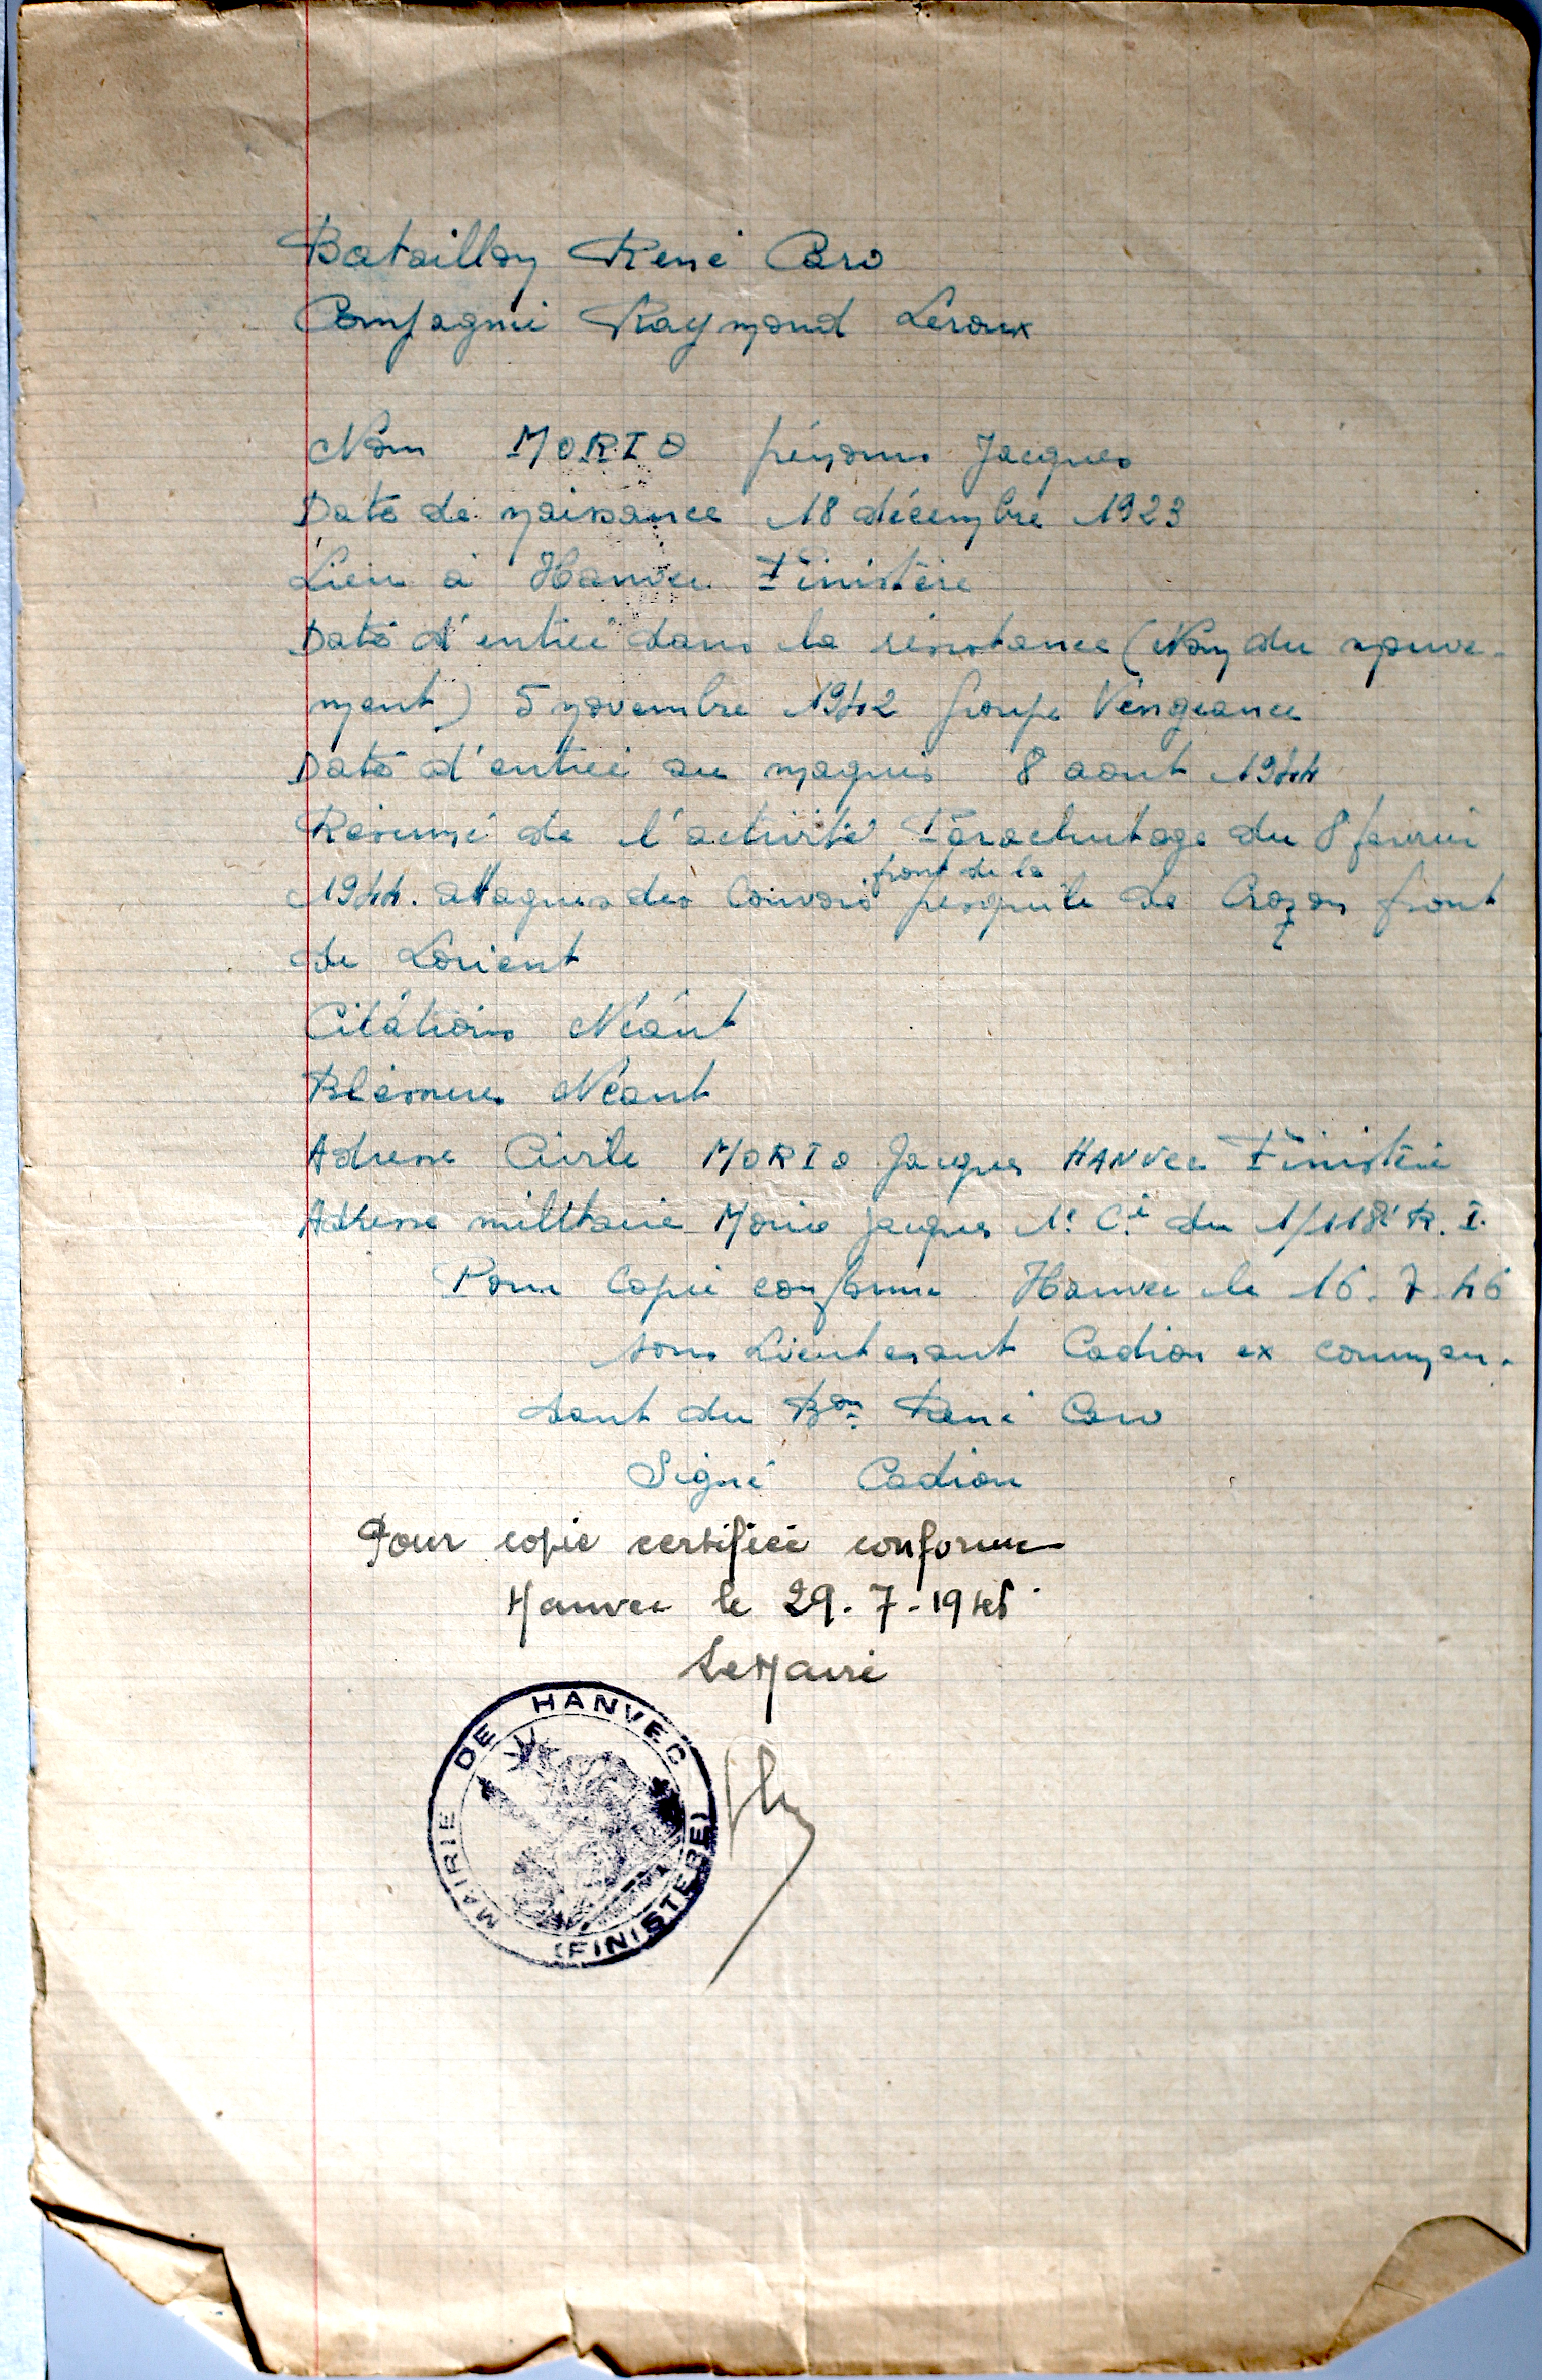 Bataillon René Caro
Compagnie Raymond Leroux
Nom MORIO prénoms Jacques
Date de naissance 18 décembre 1923
Lieu à Hanvec Finistère
Date d'entrée dans la résistance (Nom du mouve-
ment) 5 novembre 1942 groupe Vengeance
Date d'entrée au maquis 8 aout 1944
Résumé de l'activité Parachutage du 8 fevrier
1944. attaques des Convois front de la presqu'ile de Crozon front
de Lorient
Citations Néant
Blessures Néant
Adresse Civile MORIO Jacques HANVec Finistère
Adresse militaire Morio Jacques 1e Cie du 1/118e R.I.
Pour Copie conforme Hanvec le 16.7.46
sous Lieutenant Cadiou ex comman-
dant du Bon René Caro
Signé Cadiou
Pour copie certifiée conforme
Hanvec le 29-7-1946
Le Maire
MAIRIE DE HANVEC
(FINISTERE)